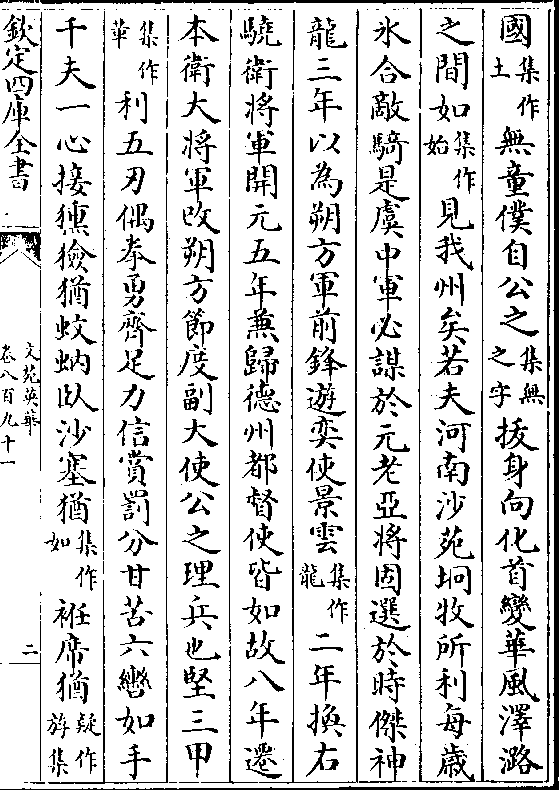 國集作土無童僕自公之集無之字拔身向化首變華風澤潞
之間如集作始見我州矣若夫河南沙苑坰牧所利每歳
氷合敵騎是虞中軍必謀於元老亞將固選於時傑神
龍三年以為朔方軍前鋒遊奕使景雲集作龍二年換右
驍衛將軍開元五年兼歸德州都督使皆如故八年遷
本衛大將軍改朔方節度副大使公之理兵也堅三甲
集作華利五刃偶拳勇齊足力信賞罰分甘苦六轡如手
千夫一心接獯獫猶蚊蚋臥沙塞猶集作如袵席猶疑作斿集
欽定四庫全書
文苑英華
卷八百九十一
二